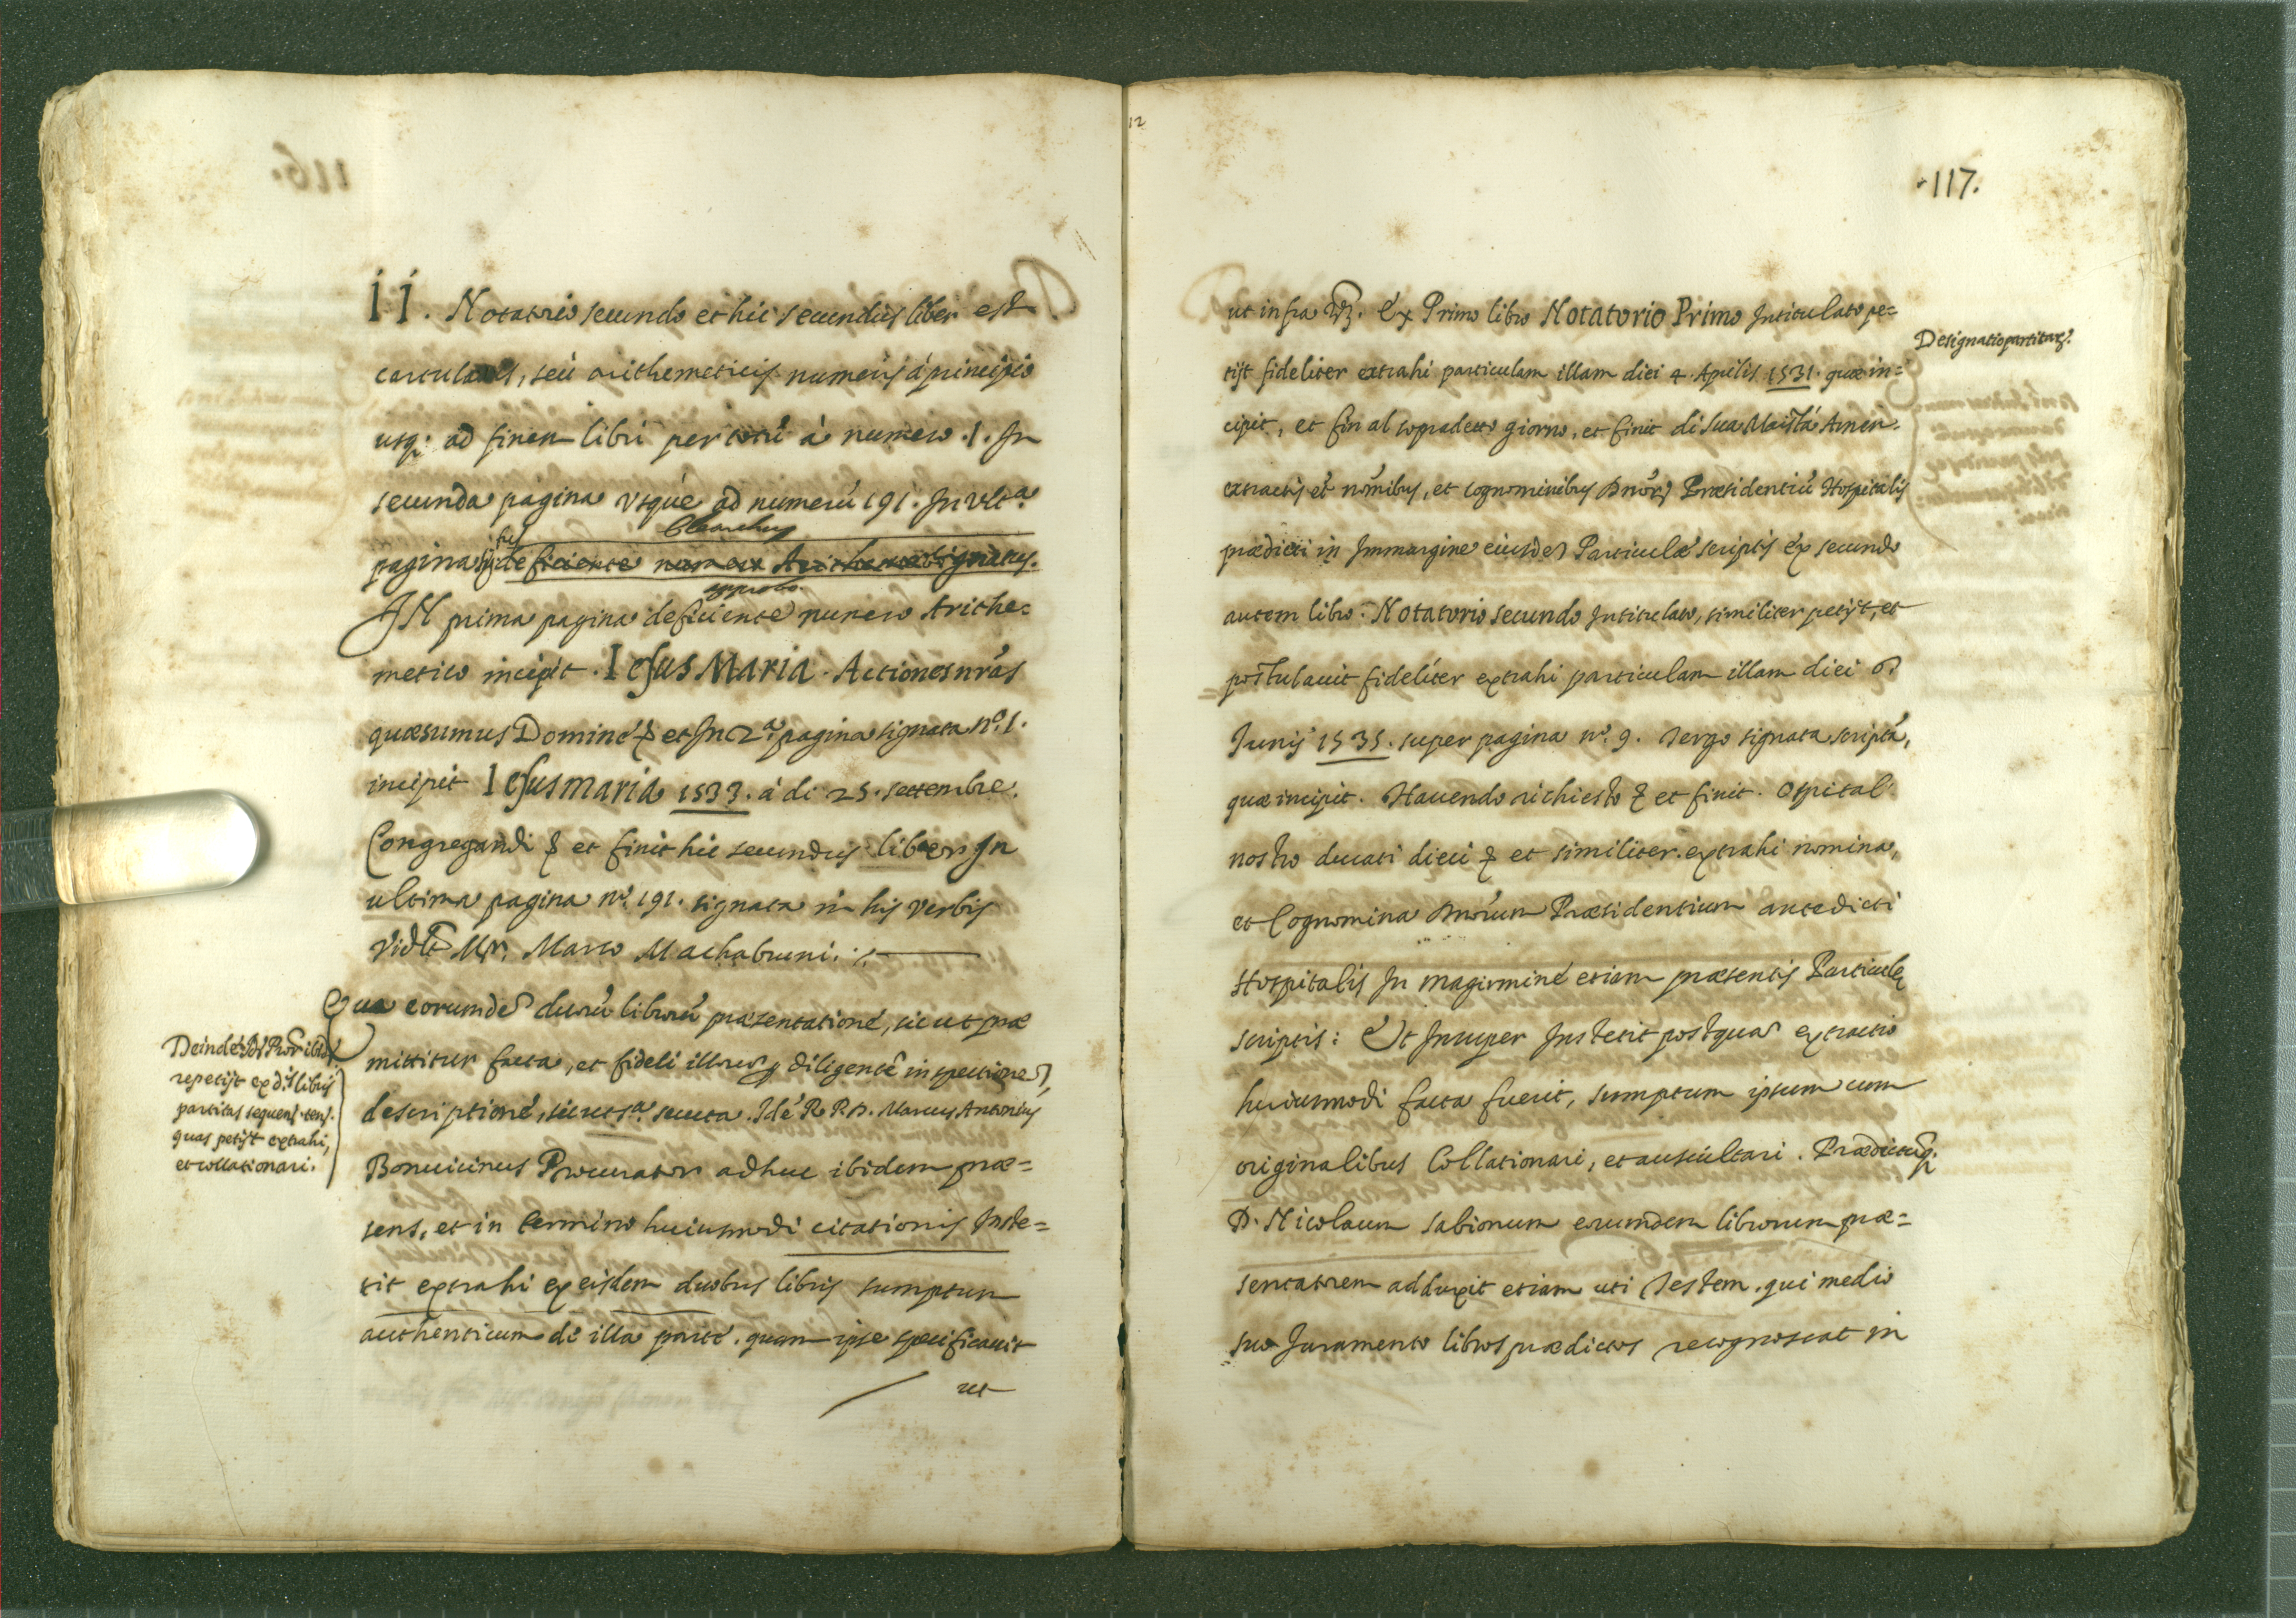 II. Notatorio secundo et hic secundus liber est
cartulatus, seù arithemeticis numeris à principio
usq; ad finem libri per totũ à numero .1. In
secunda pagina vsque ad numerũ 191. In vlt.ª
pagina
approbo.
IN prima pagina deficiente numero Arithe=
metico incipit. IesusMaria. Actiones nr̃as
quæsumus Domine & et In 2.ª pagina signata nº. 1.
incipit Iesus maria 1533. à di 25. settembre.
Congregandi & et finit hic secundus liber In
ultima pagina nº. 191. signata in his verbis
Marco Machabruni.
Qua eorumdẽ duorũ librorũ præsentatione, sicut præ
mittitur facta, et fideli illorumq; diligente inspectione,
descriptione, secuta. Idẽ R. P. D. Marcus Antonius
Bonuicinus Procurator adhuc ibidem præ=
sens, et in termino huiusmodi citationis Inste=
tit extrahi ex eisdem duobus libris sumptum
authenticum de illa parte. quam ipse specificauit
ut
Deinde
repetijt ex dis libris
partitas sequen. ten.
quas petijt extrahi,
et collationari.
12
117.
ut infra Vz. Ex Primo libro Notatorio Primo Intitulato pe=
tijt fideliter extrahi particulam illam diei 4. Aprilis 1531. quæ in=
cipit, et fin al sopradetto giorno, et finit di sua Maistà Amen.
extractis et nõmibus, et cognominibus Dnõrũ Præsidentiũ Hospitalis
prædicti in Immargine eiusdẽ Particulæ scriptis ex secundo
autem libro Notatorio secundo Intitulato, similiter petijt, et
postulauit fideliter extrahi particulam illam diei
Iunij 1535. super pagina nº. 9. Tergo signata scripta,
quæ incipit. Hauendo richiesto & et finit. Ospital
nostro ducati dieci & et similiter extrahi nomina,
et Cognomina Dnõrum Præsidentium antedicti
Hospitalis In magirmine etiam præsentis Particulę
scriptis: Et Insuper Instetit postquã extractio
huiusmodi facta fuerit, sumptum ipsum cum
originalibus Collationari, et auscultari. Prædictumq;
D. Nicolaum Sabionum eorumdem librorum præ=
sentatorem adduxit etiam uti Testem. qui medio
suo Iuramento libros prædictos recognoscat in
Designatio partitarũ.